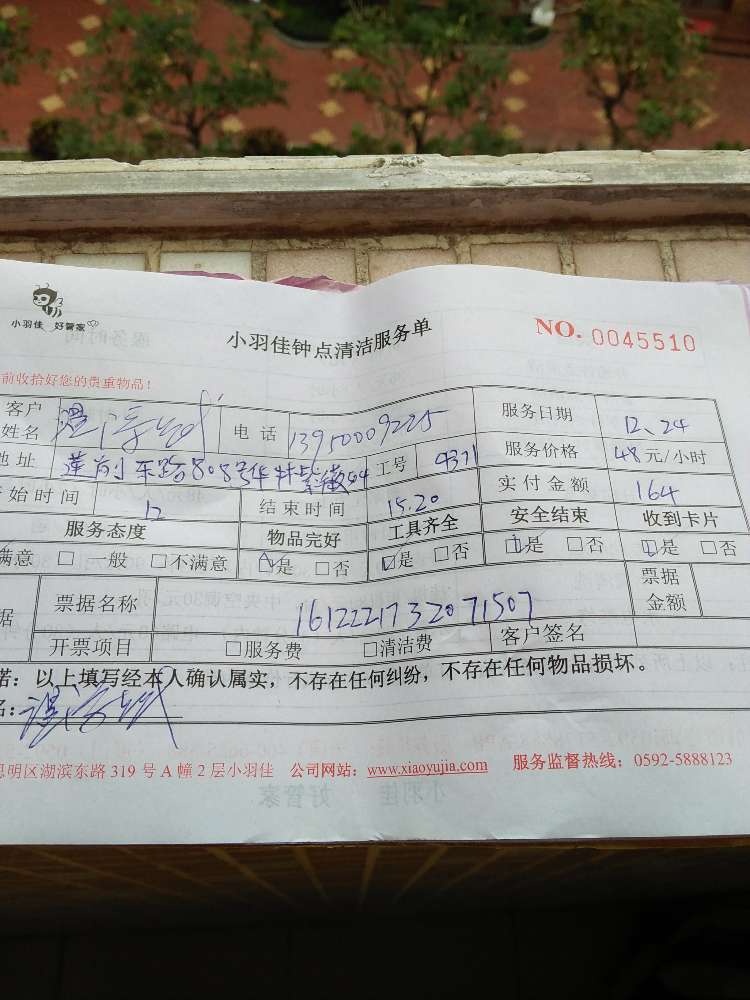 小羽佳 好管家
小羽佳钟点清洁服务单
NO. 0045510
前收拾好您的贵重物品!
客户姓名 电话 13950009225 服务日期 12.24
地址 工号 4371 服务价格 48元/小时
开始时间 12 结束时间 15.20 实付金额 164
服务态度 物品完好 工具齐全 安全结束 收到卡片
满意 □一般 □不满意 ☑是 □否 ☑是 □否 ☑是 □否 ☑是 □否
据 票据名称 161222173207 1507 票据金额
开票项目 □服务费 □清洁费 客户签名
诺:以上填写经本人确认属实,不存在任何纠纷,不存在任何物品损坏。
名:
思明区湖滨东路 319 号 A 幢 2 层小羽佳 公司网站:www.xiaoyujia.com 服务监督热线:0592-5888123